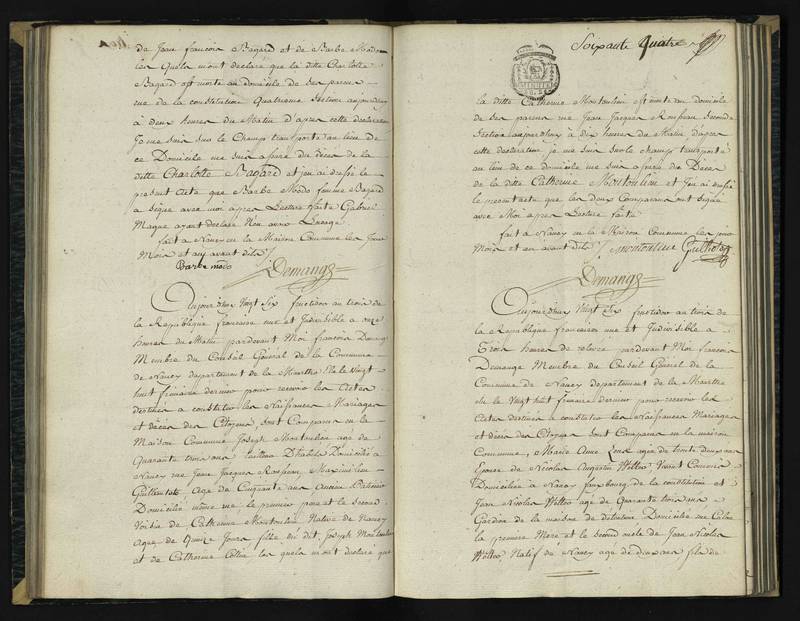 de Jean francois Bagard et de Barbe Modo
les quels m'ont declaré que la ditte Charlotte
Bagard est morte au domicile de ses parens
rue de la constitution Quatrieme Section aujourdhuy
à deux heures du Matin d'après cette declaration
Je me suis sur le Champ transporté au lieu de
ce Domicile me suis assuré du déces de la
ditte Charlotte Bagard et j'en ai dressé le
présent acte que Barbe Modo femme Bagard
a signé avec moi après Lecture faite Gabriel
Maque ayant declaré n'en avoir L'usage
fait à Nancy en la Maison Commune les Jour
Mois et an avant dits
Barbe modo
Demange
Aujourdhuy Vingt Six fructidor an trois de
la Republique francaise une et Indivisible à onze
heures du Matin pardevant Moi francois Demange
Membre du Conseil Général de la Commune
de Nancy departement de la Meurthe Elu le Vingt
huit frimaire dernier pour recevoir les Actes
destinés a constituer les Naissances Mariages
et décès des Citoyens sont Comparus en la
Maison Commune Joseph Montoulieu agé de
Quarante trois ans D'habits Domicilié à
Nancy rue Jean Jacques Rousseau, Maximilien
Guilbert agé de Cinquante ans Ancien
Domicilié même rue le premier pere et le Second
Voisin de Catherine Montoulieu Native de Nancy
Agée de Quinze Jours fille du dit Joseph Montoulieu
et de Catherine les quels m'ont declaré que
Soixante Quatre
la ditte Catherine Montoulieu est morte au domicile
de ses parens rue Jean Jacques Rousseau Seconde
Section aujourdhuy à dix heures du Matin d'après
cette declaration je me suis sur le champ transporté
au lieu de ce domicile me suis assuré du Déces
de la ditte Catherine Montoulieu et J'en ai dressé
le present acte que les deux Comparans ont Signé
avec Moi après Lecture faite
fait à Nancy en la Maison Commune les jour
Mois et an avant dits J. montoulieu
Demange
Aujourdhuy Vingt Six fructidor an trois de
la Republique francaise une et Indivisible à
Trois heures de relevée pardevant Moi francois
Demange Membre du Conseil Général de la
Commune de Nancy departement de la Meurthe
élu le Vingt huit frimaire dernier pour recevoir les
Actes destinés a constituer les Naissances Mariages
et décès des Citoyens sont Comparus en la maison
Commune, Marie Anne agée de trente deux ans
Epouse de Nicolas Augustin
Domiciliée à Nancy fauxbourg de la constitution et
Jean Nicolas agé de Quarante trois ans
Gardien de la maison de détention Domicilié rue
la premiere Mere et le Second oncle de Jean Nicolas
Natif de Nancy agé de dix ans fils de